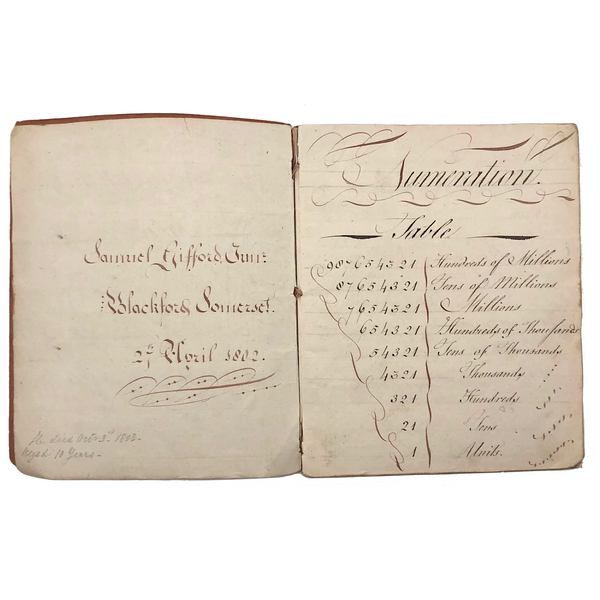 Samuel Gifford, Junr.
Blackford Somerset.
2d. April 1802.
He died Octr 3d. 1803.
Aged 10 Years.
Numeration.
Table
987654321 Hundreds of Millions
87654321 Tens of Millions
7654321 Millions
654321 Hundreds of Thousands
54321 Tens of Thousands
4321 Thousands
321 Hundreds
21 Tens
1 Units.